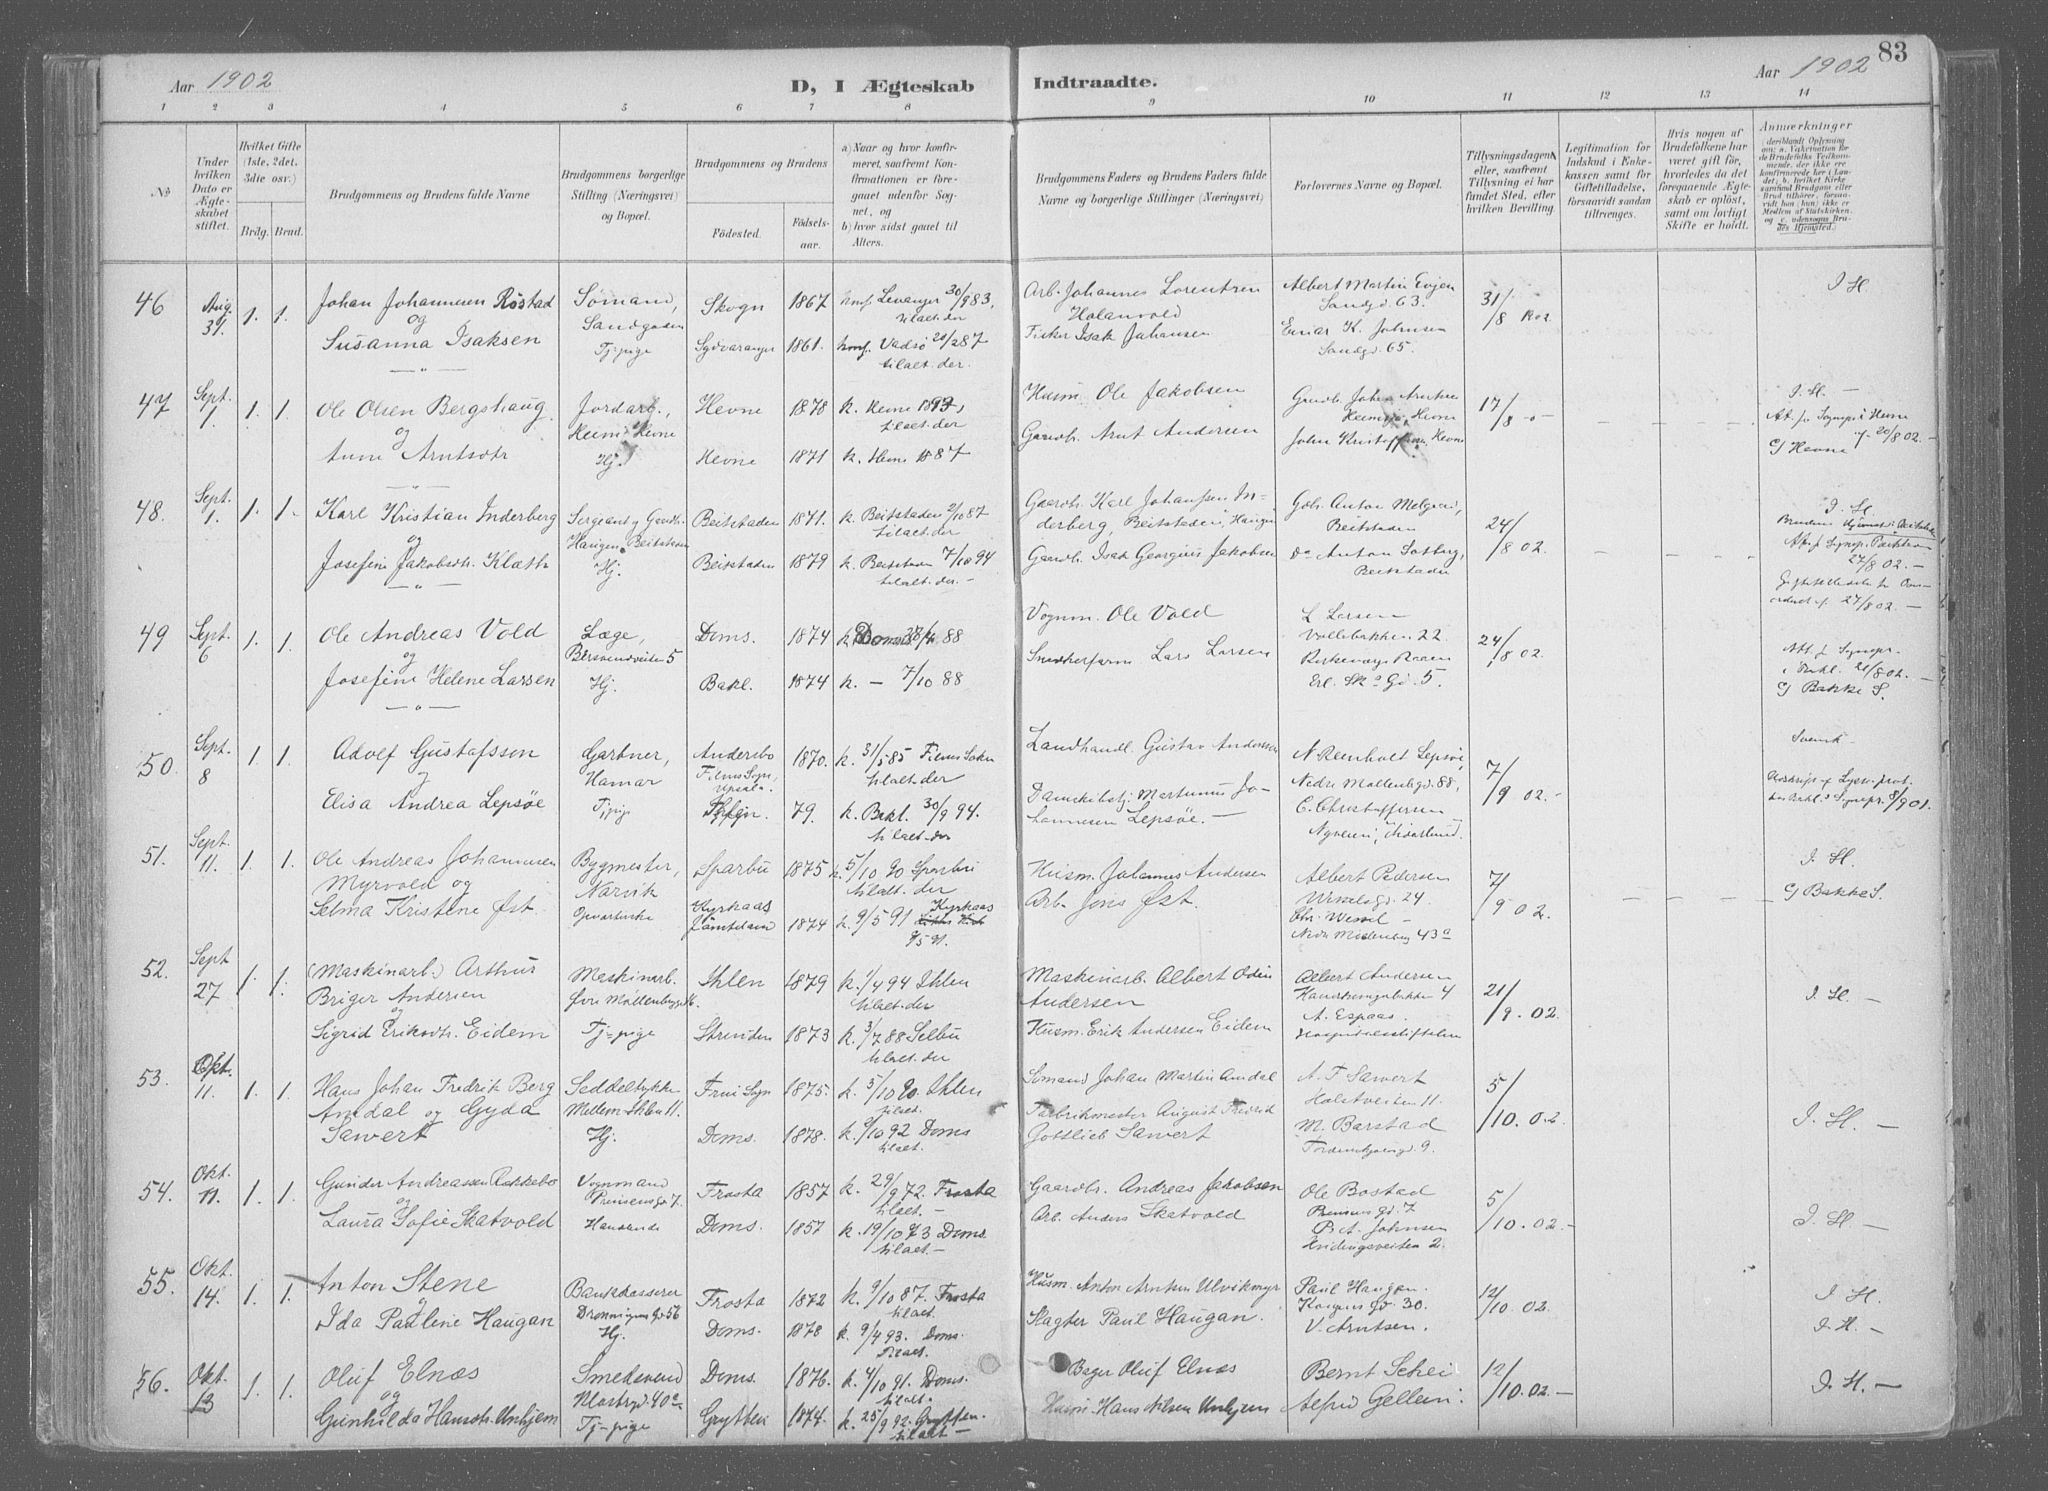 Aar 1902
D, I Ægteskab
Indtraadte.
Aar 1902
83
1 2 3 4 5 6 7 8 9 10 11 12 13 14
No
Under hvilken Dato er Ægteskabet stiftet.
Hvilket Gifte (1ste, 2det, 3die osv.)
Brdg. Brud.
Brudgommens og Brudens fulde Navne
Brudgommens borgerlige Stilling (Næringsvei) og Bopæl.
Brudgommens og Brudens
Fødested.
Fødselsaar.
a) Naar og hvor konfirmeret, saafremt Konfirmationen er foregaaet udenfor Sognet, og
b) hvor sidst gaaet til Alters.
Brudgommens Faders og Brudens Faders fulde Navne og borgerlige Stillinger (Næringsvei)
Forlovernes Navne og Bopæl.
Tillysningsdagene, eller, saafremt Tillysning ei har fundet Sted, efter hvilken Bevilling.
Legitimation for Indskud i Enkekassen samt for Giftetilladelse, forsaavidt saadan tiltrænges.
Hvis nogen af Brudefolkene har været gift før, hvorledes da det foregaaende Ægteskab er opløst, samt om lovligt Skifte er holdt.
Anmærkninger
46 Aug. 31. 1. 1.
Johan Johannesen Röstad
og
Susanna Isaksen
Sømand, Sandgaden
Tj.pige
Skogn 1867
Sydvaranger 1861.
konf. Levanger 30/9 83, til alt. der
konf. Vadsø 20/2 87 til alt. der.
Arb. Johannes Lorentzen Holanvold
Fisker Isak Johansen
Albert Martin Evjen Sandgd. 63.
Einar K. Johnsen Sandgd. 65.
31/8 1902
I H.
47 Sept. 1. 1. 1.
Ole Olsen Bergshaug
og
Anne Arntsdtr
Jordarb., Hevne
Hj.
Hevne 1878
Hevne 1871
k. Hevne 1893, til alt. der
k. Hevne 1887
Husm. Ole Jakobsen
Gaardb. Arnt Andersen
Gaardb. Johan Arntsen Hevne
John Kristoffersen, Hevne
17/8
I. H. —
Att. fr. Sognepr. i Hevne 20/8 02. —
c) Hevne
48. Sept. 1. 1. 1.
Karl Kristian Inderberg
og
Josefine Jakobsdtr. Klæth
Sergeant og Gaardb. Haugen, Beitstaden
Hj.
Beitstaden 1871.
Beitstaden 1879
k. Beitstaden 2/10 87 til alt. der
k. Beitstaden 7/10 94 til alt. der. —
Gaardb. Karl Johanssen Inderberg, Beitstaden, Haugen
Gaardb. Isak Georgius Jakobsen
Beitstaden
Beitstaden
24/8 02.
I. H.
27/8 02. —
27/8 02. —
49 Sept. 6 1. 1.
Ole Andreas Vold
og
Josefine Helene Larsen
Læge, Bersvendveiten 5
Hj.
Doms. 1874
Bakl. 1874
k. Doms. 88
k. — 7/10 88
Vognm. Ole Vold
Snedkerform. Lars Larsen
L Larsen Vollebakken 22.
Erl. Sk. Gd. 5.
24/8 02.
Att. f. Sognepr. i Bakl. 21/8 02. —
c) Bakke S.
50. Sept. 8 1. 1.
Adolf Gustafsson
og
Elisa Andrea Lepsöe
Gartner, Hamar
Tj.pige
Andersbo Films Sogn, Upsala
1870.
79.
k. 31/5 85 Films Sokn til alt. der
k. Bakl. 30/9 94. til alt. der
Landhandl. Gustav Andersson
Dampskibstj. Martinus Johannesen Lepsöe. —
N. Reenholt Lepsöe, Nedre Möllenbgd. 88,
C. Christoffersen
7/9 02. —
Svensk —
8/9 01.
51. Sept. 11. 1. 1.
Ole Andreas Johannesen Myrvold og
Selma Kristine Øst.
Bygmester, Narvik
Opvarterske
Sparbu 1875
Kyrkaas Jämtland 1874
k. 5/10 90 Sparbu til alt. der
k. 9/5 91 Kyrkaas 9/5 91.
Husm. Johannes Andersen
Arb. Jöns Øst.
Albert Pedersen Wesselsgd. 24.
Chr. Wessel — Nedr Möllenbg 43a
7/9 02.
I. H.
c) Bakke S.
52. Sept 27 1. 1.
(Maskinarb.) Arthur Briger Andersen
og
Sigrid Eriksdtr. Eidem
Maskinarb. Øvre Möllenbergg. 16.
Tj-pige
Ihlen 1879
Strinden 1873
k. 1/4 94 Ihlen til alt. der
k. 3/7 88 Selbu til alt. der
Maskinarb. Albert Odin Andersen
Husm. Erik Andersen Eidem
Albert Andersen 4
A. Espaas. Hospitalsstiftelsen
21/9. 02.
I. H. —
53. Okt. 11. 1. 1.
Hans Johan Fredrik Berg Amdal og Gyda Sawert
Sæddeltykker Mellem-Ihlen 11.
Hj.
Frue Sogn 1875.
Doms. 1878.
k. 5/10 90. Ihlen til alt.
k. 9/10 92 Doms til alt.
Sömand Johan Martin Amdal
Fabrikmester August Fredrik Gottlieb Sawert
A. F. Sawert Holstveiten 11.
M. Barstad Tordenskjoldsgd. 9.
5/10. 02.
I. H. —
54. Okt. 11. 1. 1.
Gunder Andreassen Rekkebo
og
Laura Sofie Skatvold
Vognmand Prinsensgd 7.
Handlende
Frosta 1857
Doms. 1857
k. 29/9 72. Frosta til alt. —
k. 19/10 73 Doms. til alt. —
Gaardbr. Andreas Jakobsen
Arb. Anders Skatvold
Ole Bostad Prinsens Gd. 7
P. A. Johnsen Hvedingsveiten 2.
5/10. 02. —
I. H. —
55. Okt. 14. 1. 1.
Anton Stene
og
Ida Pauline Haugan
Bankkasserer Dronningens Gd 56
Hj.
Frosta 1872
Doms. 1878
k. 9/10 87. Frosta til alt.
k. 9/4 93. Doms. til alt.
Husm. Anton Arntsen Ulvikmyr
Slagter Paul Haugan.
Paul Haugan. Kongens Gd. 30.
V. Arntsen.
12/10. 02.
I. H.
I. H. —
56. Okt. 13 1. 1.
Oluf Elnæs
og
Gunhilda Hansdtr. Unhjem
Smedsvend Klostergd. 40a
Tj-pige
Doms. 1876.
Grytten 1874.
k. 4/10 91. Doms. til alt.
k. 25/9 92. Grytten. til alt —
Bager Oluf Elnæs
Husm. Hans Nilsen Unhjem
Bernt Schei
Alfred Gellein
12/10. 02. —
I. H. —